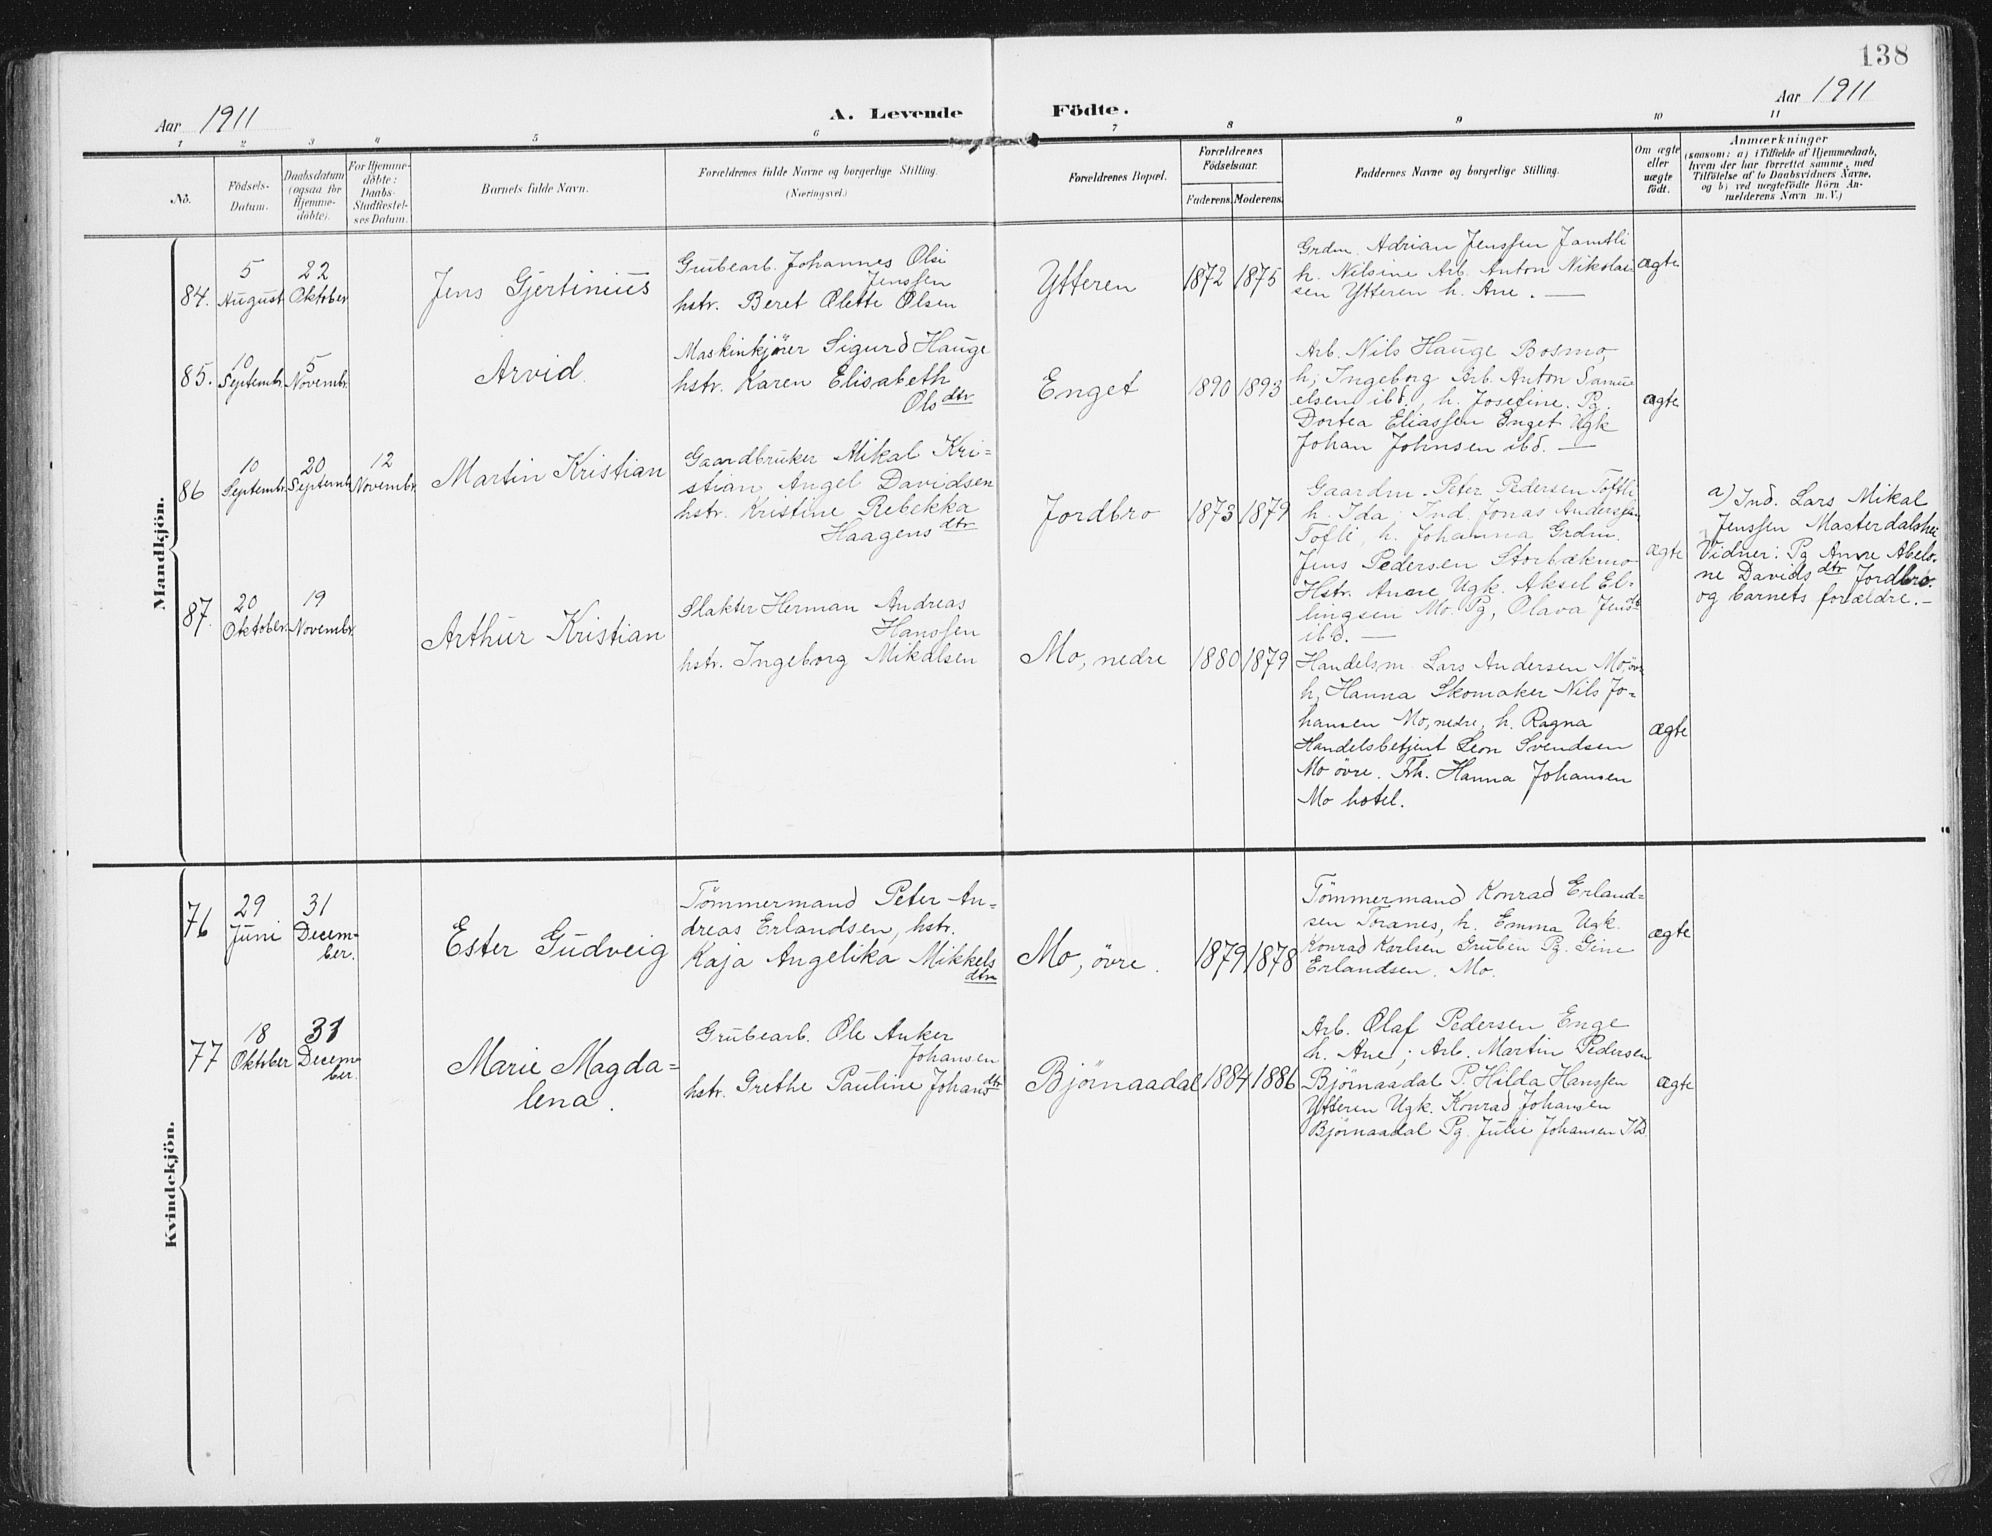 138
Aar 1911
A. Levende
Födte.
Aar 1911
1 2 3 4 5 6 7 8 9 10 11
No.
Födsels-
Datum.
Daabsdatum
(ogsaa for
Hjemme-
döbte).
For Hjemme-
döbte:
Daabs-
Stadfæstel-
ses Datum.
Barnets fulde Navn.
Forældrenes fulde Navne og borgerlige Stilling.
(Næringsvei.)
Forældrenes Bopæl.
Forældrenes
Födselsaar.
Faderens. Moderens.
Faddernes Navne og borgerlige Stilling.
Om ægte
eller
uægte
födt.
Anmærkninger
(saasom: a) i Tilfælde af Hjemmedaab,
hvem der har forrettet samme, med
Tilföielse af to Daabsvidners Navne,
og b) ved uægtefödte Börn An-
melderens Navn m. V.)
Mandkjön.
84.
5
August
22
Oktober
Jens Gjertinius
Grubearb. Johannes Olai
Jenssen
hstr. Beret Olette Olsen
Ytteren
1872 1875
Grdm. Adrian Jenssen Jamtli
h. Nilsine Arb. Anton Nikolai-
sen Ytteren h. Ane. —
ægte
85.
10
Septembr.
5
Novembr.
Arvid
Maskinkjører Sigurd Hauge
hstr. Karen Elisabeth
Olsdtr
Enget
1890 1893
Arb. Nils Hauge Bosmo,
h; Ingeborg Arb. Anton Samu-
elsen ibd., h. Josefine. Pg.
Dortea Eliassen Enget Ugk
Johan Johnsen ibd. —
ægte
86
10
Septembr.
20
Septembr
12
Novembr.
Martin Kristian
Gaardbruker Mikal Kri-
stian Angel Davidsen
hstr. Kristine Rebekka
Haagensdtr
Jordbro
1873 1879
Gaardm. Peter Pedersen Toftli
h. Ida; Ind. Jonas Anderssen
Tofli, h. Johanna Grdm.
Jens Pedersen Storbækmo
Hstr. Anne Ugk. Aksel El-
lingsen Mo. Pg, Olava Jensdtr
ibd. —
ægte
a) Ind. Lars Mikal
Jenssen Masterdalshei
Vidner: Pg Anne Abelo-
ne Davidsdtr Jordbro
og barnets forældre. —
87.
20
Oktober.
19
Novembr.
Arthur Kristian
Slakter Herman Andreas
Hanssen
hstr. Ingeborg Mikalsen
Mo, nedre
1880 1879
Handelsm. Lars Andersen Mo, øvre
h, Hanna Skomaker Nils Jo-
hansen Mo, nedre, h. Ragna
Handelsbetjent Leon Svendsen
Mo øvre. Frk. Hanna Johansen
Mo hotel.
ægte
Kvindekjön.
76
29
Juni
31
Decem-
ber.
Ester Gudveig
Tømmermand Peter An-
dreas Erlandsen, hstr.
Kaja Angelika Mikkels
dtr
Mo, øvre.
1879 1878
Tømmermand Konrad Erland-
sen Toranes, h. Emma Ugk.
Konrad Karlsen Gruben Pg. Gine
Erlandsen. Mo.
ægte
77
18
Oktober
31
Decem-
ber.
Marie Magda-
lena.
Grubearb. Ole Anker
Johansen
hstr. Grethe Pauline Johansdtr
Bjørnaadal
1884 1886
Arb. Olaf Pedersen Enge
h. Ane; Arb. Martin Pedersen
Bjørnaadal P. Hilda Hanssen
Ytteren Ugk. Konrad Johansen
Bjørnaadal Pg. Julie Johansen Ibd.
ægte